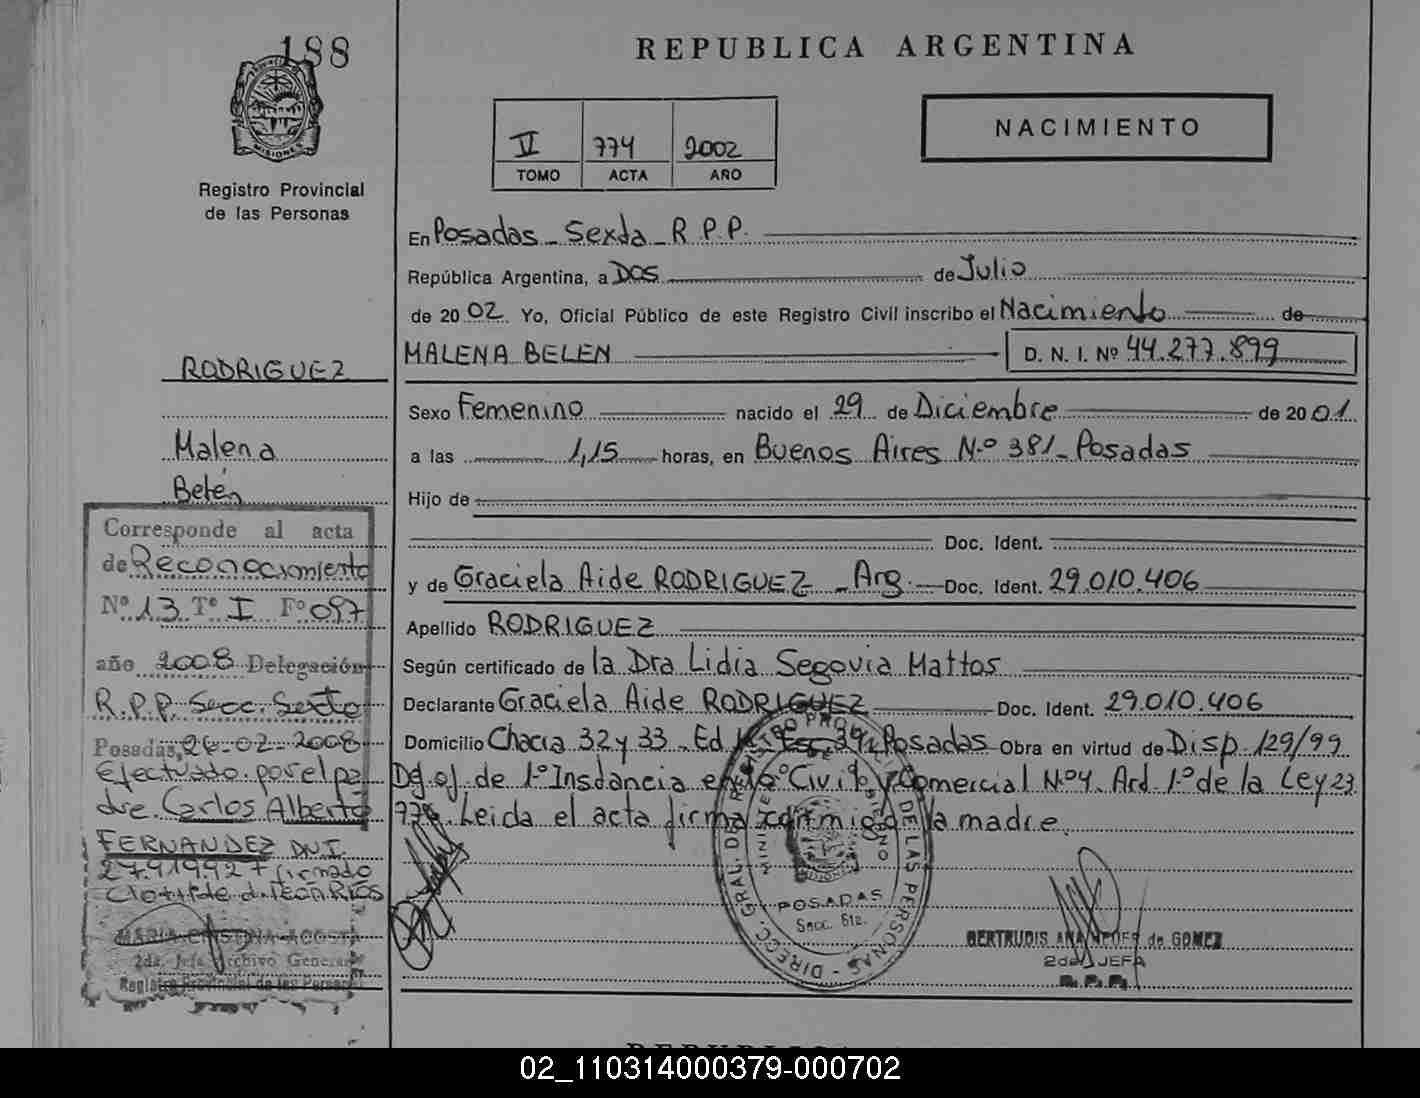 188
REPUBLICA ARGENTINA
MISIONES
Registro Provincial
de las Personas
II 774 2002
TOMO ACTA AÑO
NACIMIENTO
En Posadas - Sexta - R.P.P.
República Argentina, a Dos de Julio
de 20 02 Yo, Oficial Público de este Registro Civil inscribo el Nacimiento de
MALENA BELEN D. N. I. Nº 44.277.899
Sexo Femenino nacido el 29 de Diciembre de 20 01
a las 1,15 horas, en Buenos Aires N.º 381 - Posadas
Hijo de
Doc. Ident.
y de Graciela Aide RODRIGUEZ - Arg. Doc. Ident. 29.010.406
Apellido RODRIGUEZ
Según certificado de la Dra Lidia Segovia Mattos
Declarante Graciela Aide RODRIGUEZ Doc. Ident. 29.010.406
Domicilio Chacra 32 y 33 - Ed Esc. 39, Posadas Obra en virtud de Disp. 129/99
de 1º Instancia en lo Civil y Comercial Nº 4. Ard. 1.º de la Ley 23
776. Leida el acta firma conmigo la madre.
RODRIGUEZ
Malena
Belén
Corresponde al acta
de Reconocimiento
Nº 13 Tº I Fº 097
año 2008 Delegación
R.P.P. Secc. Sexta
Posadas, 26-02-2008
Efectuado por el pa
dre Carlos Alberto
FERNANDEZ DNI
27.919.927 firmado
MARIA CRISTINA ACOSTA
2da. Jefa Archivo General
Registro Provincial de las Personas
DIRECC. GRAL. DE REGISTRO PROVINCIAL DE LAS PERSONAS
POSADAS
Secc. 6ta.
BERTRUDIS ANA de GOMEZ
2da JEFA
R.P.P.
02_110314000379-000702